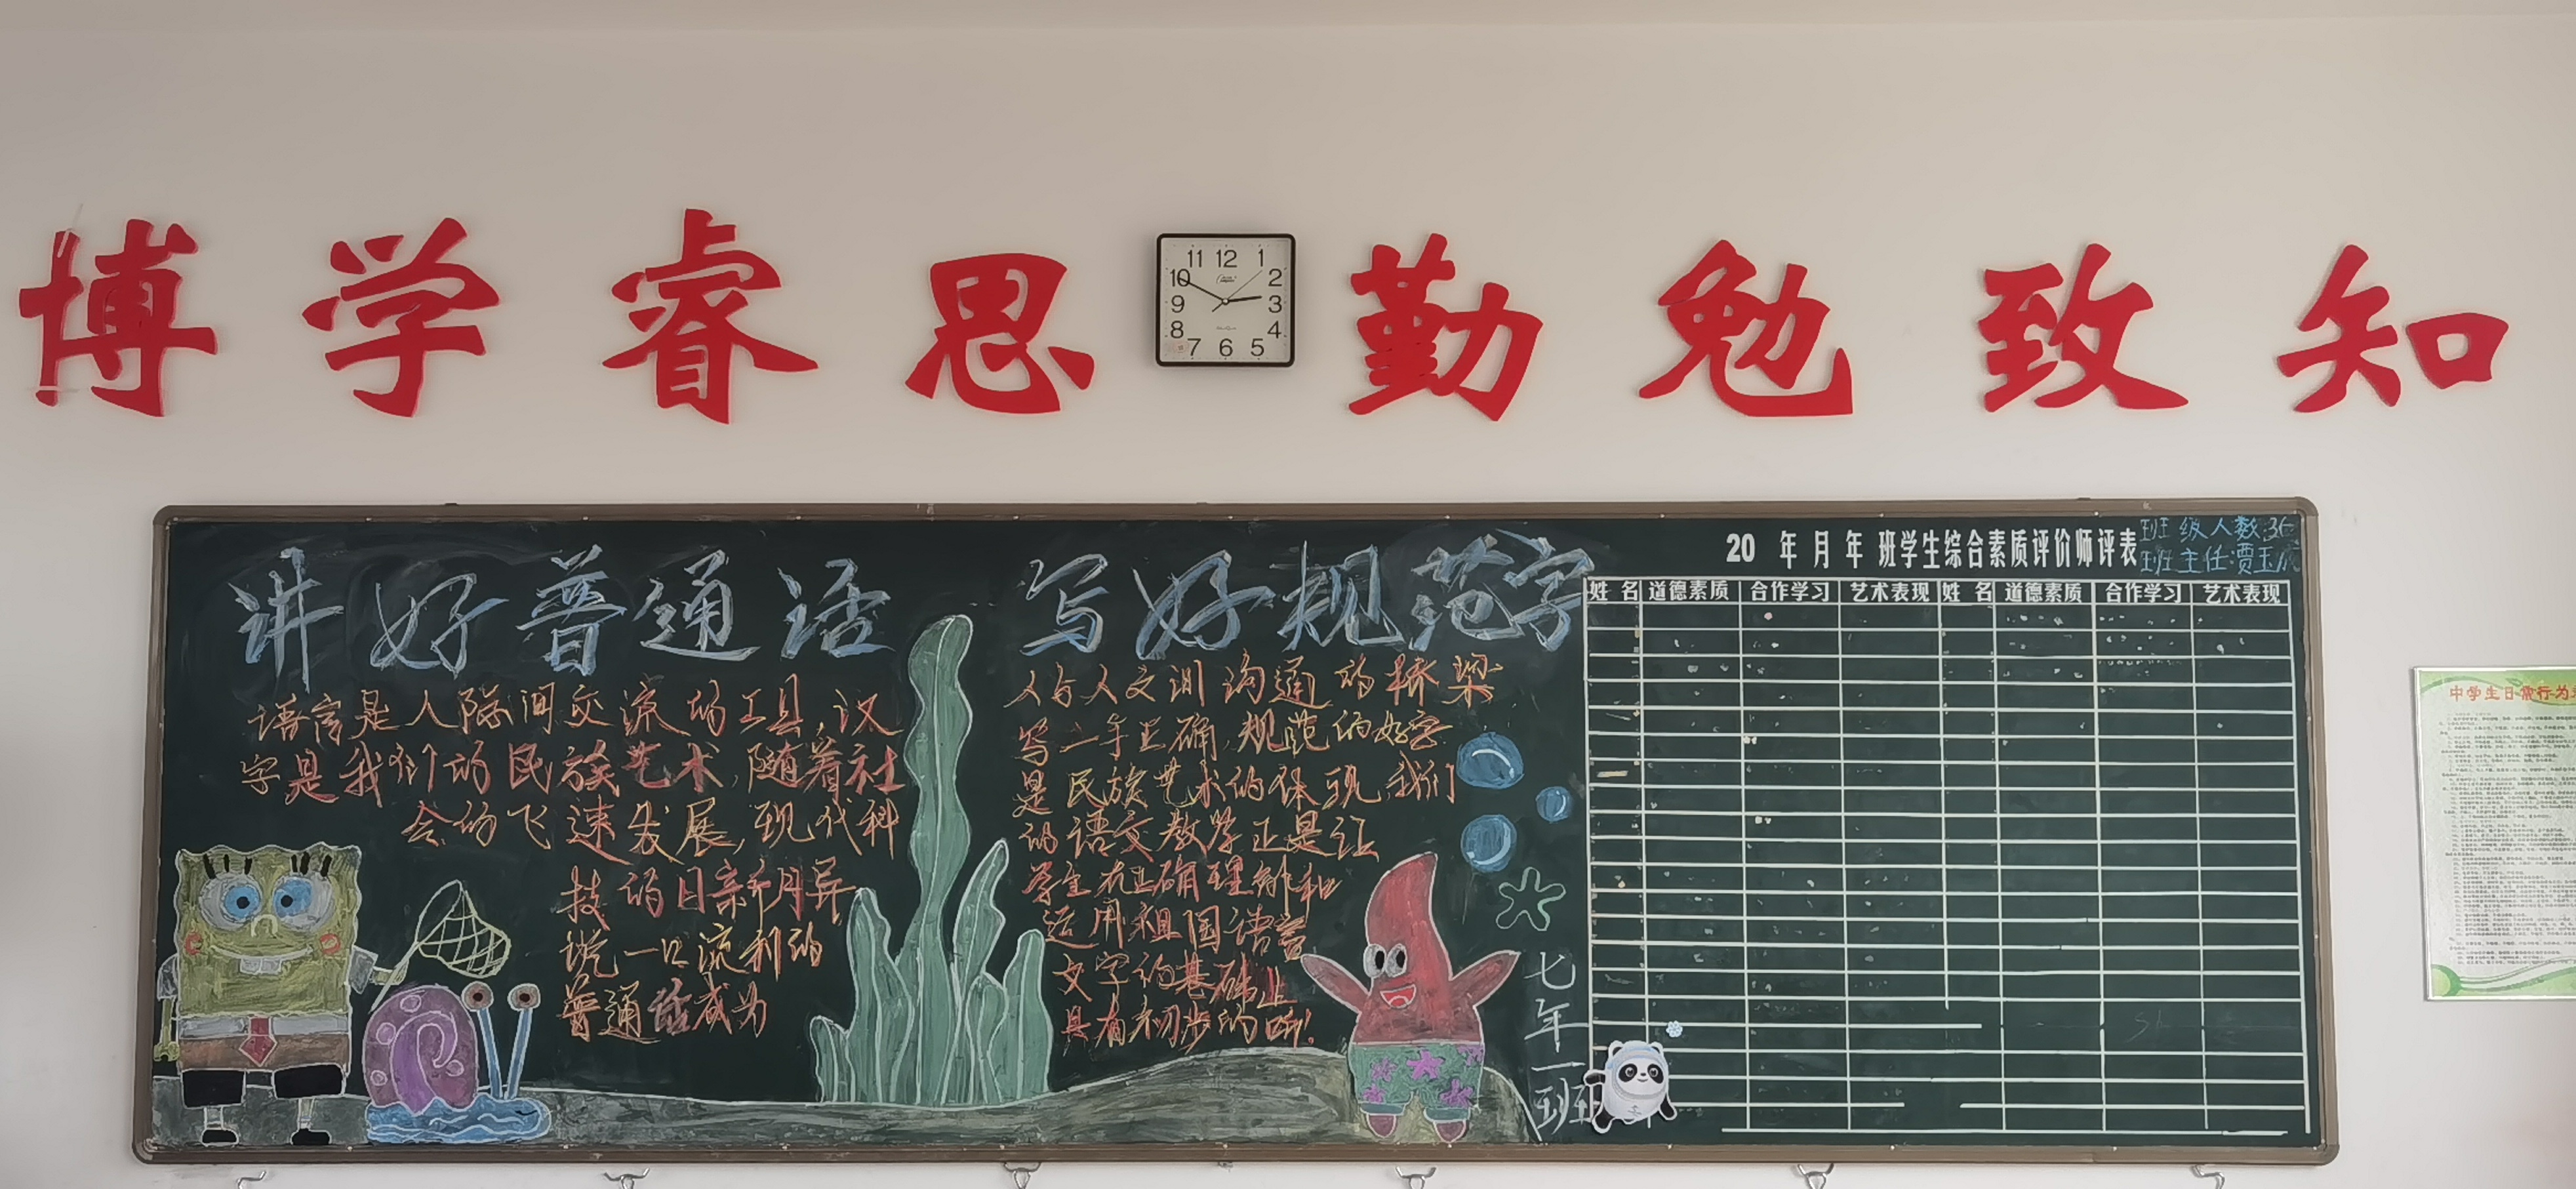 博学睿思
勤勉致知
11 12 1
10 2
9 3
8 4
7 6 5
讲好普通话
语言是人际间交流的工具,汉
字是我们的民族艺术,随着社
会的飞速发展,现代科
技的日新月异
说一口流利的
普通话成为
写好规范字
人与人交训沟通的桥梁
写一手正确,规范的好字
是民族艺术的体现,我们
的语文教学正是让
学生在正确理解和
运用祖国语言
文字的基础上
具有初步的听!
七年一班
20 年 月 年 班学生综合素质评价师评表
班级人数:36
班主任:贾玉
姓名 道德素质 合作学习 艺术表现 姓名 道德素质 合作学习 艺术表现
中学生日常行为